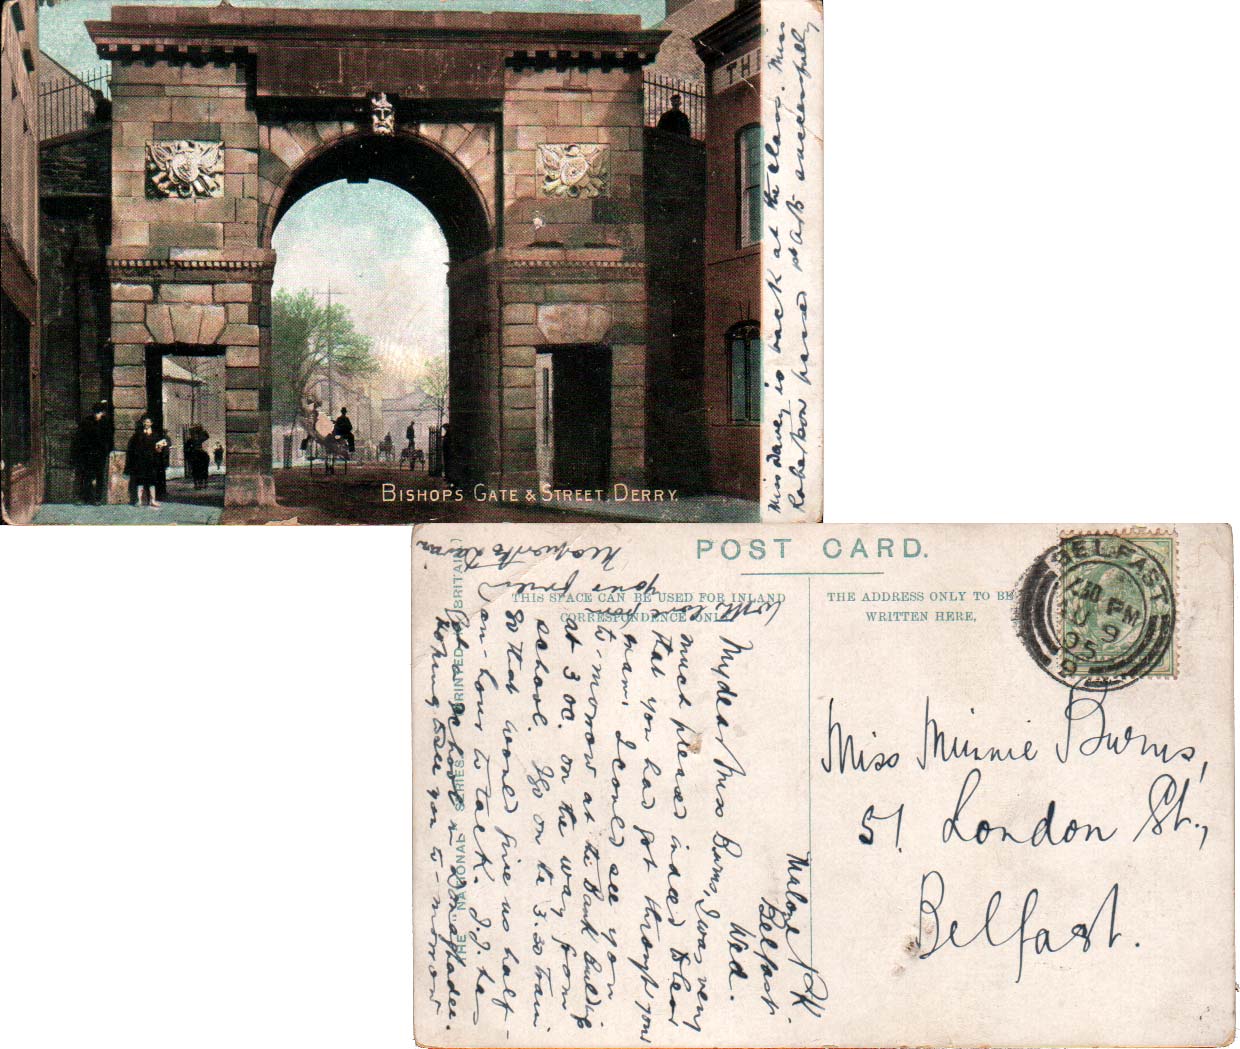 BISHOP'S GATE & STREET, DERRY.
THE
Miss Davey is back at the class. Miss
Robertson passed part successfully
POST CARD.
THIS SPACE CAN BE USED FOR INLAND
CORRESPONDENCE ONLY
THE ADDRESS ONLY TO BE
WRITTEN HERE,
BELFAST
7.30 PM
9
05
Miss Minnie Burns,
51 London St.,
Belfast.
Malone Pk.
Belfast
Wed.
My dear Miss Burns, I was very
much pleased indeed to hear
that you had got through your
exam. I could see you
to-morrow at the Bank Buildgs
at 3 oc. on the way from
school. I go on the 3.30 train
so that would give us half-
an-hour to talk.
school in Donaghadee.
Hoping to see you to-morrow
With love from
your friend
THE NATIONAL SERIES
PRINTED BRITAIN